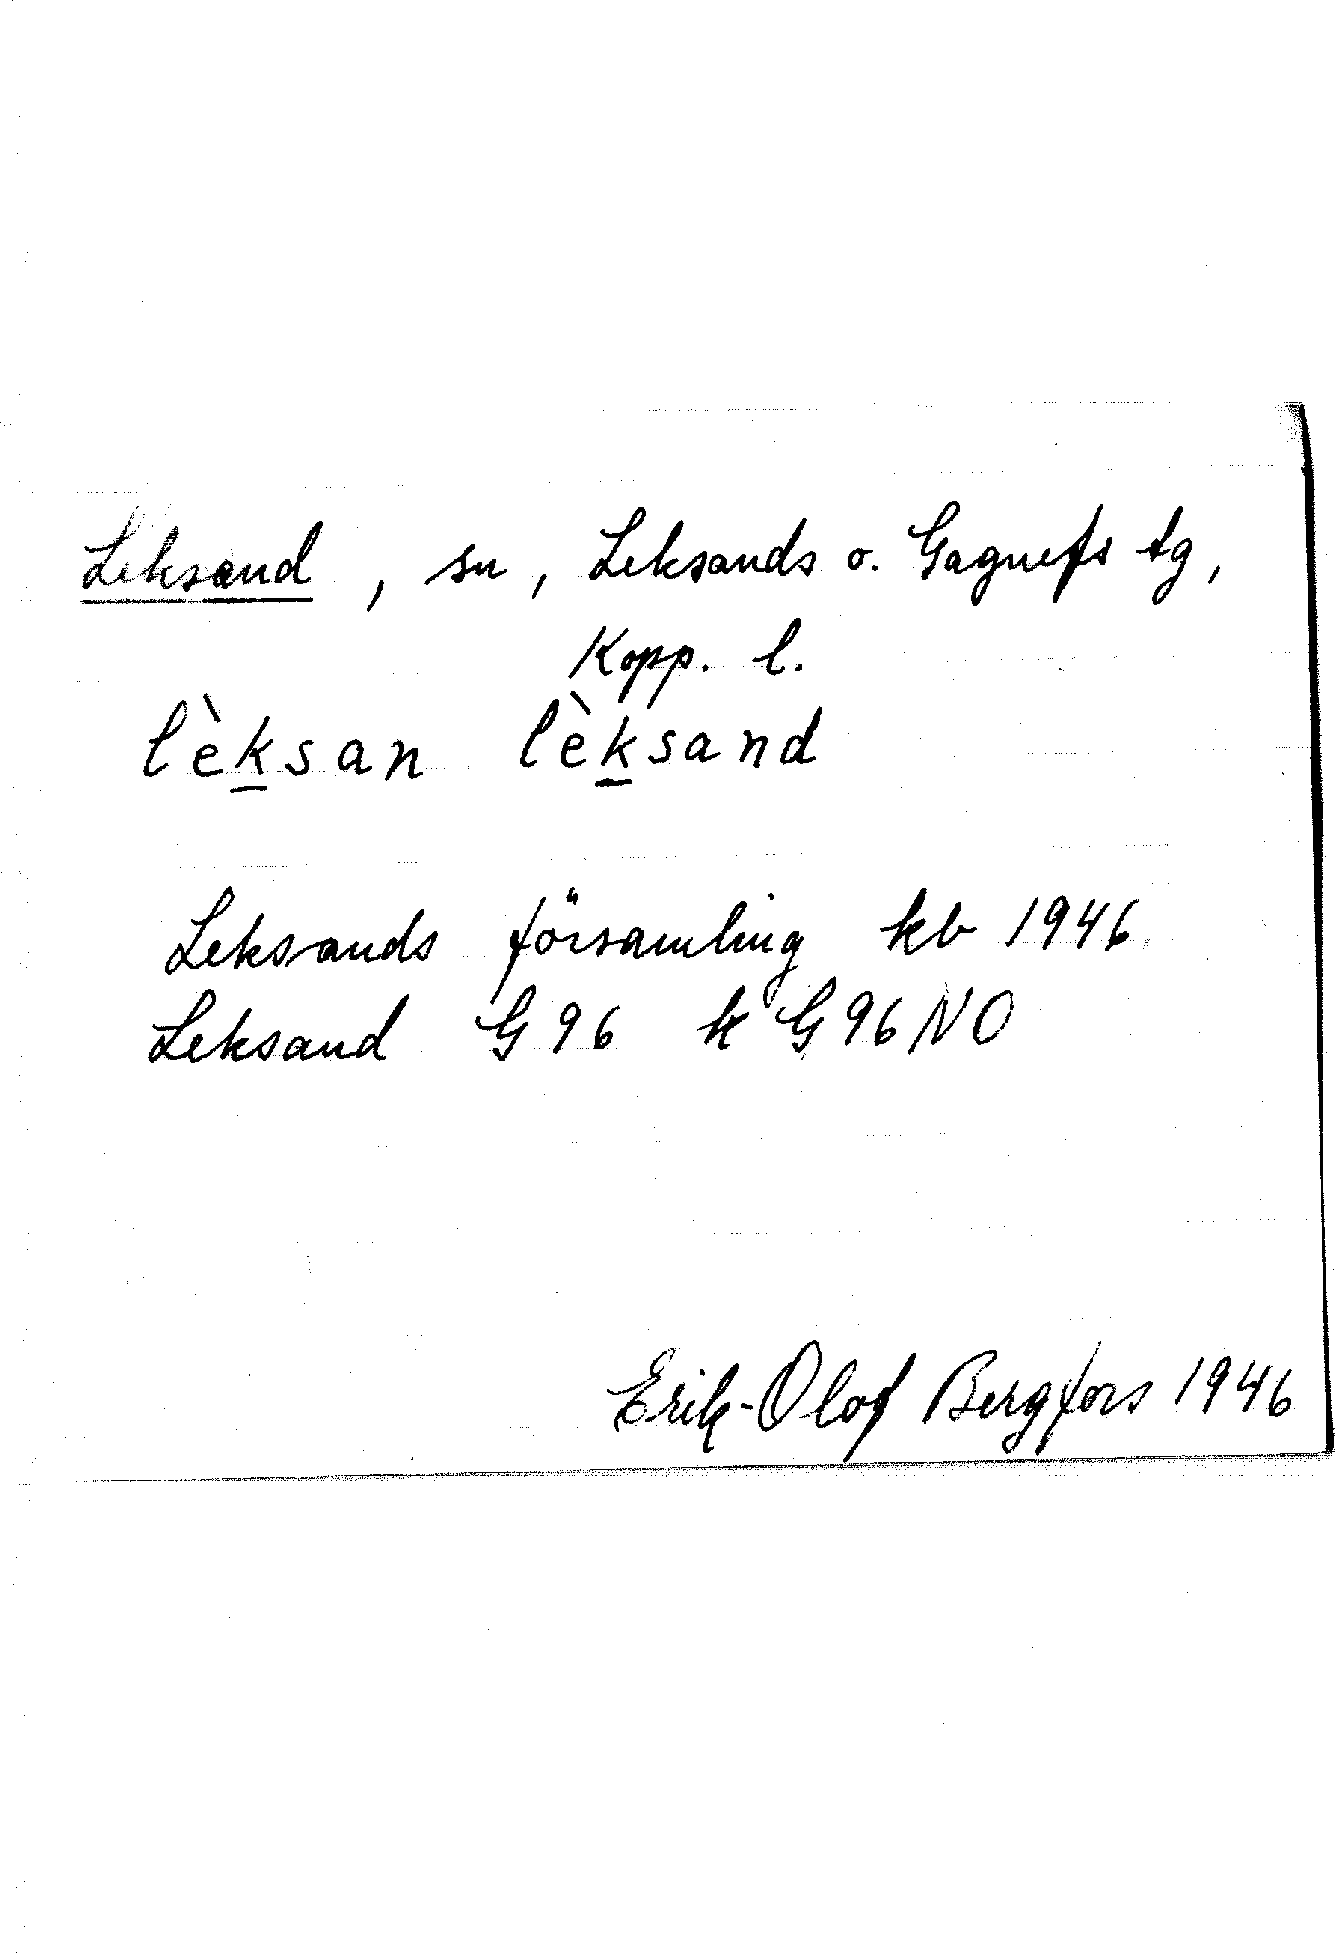 Leksand, sn, Leksands o. Gagnefs tg,
Kopp. l.
lèksan lèksand
Leksands församling kb 1946
Leksand G 96 k G 96 NO
Erik-Olof Bergfors 1946